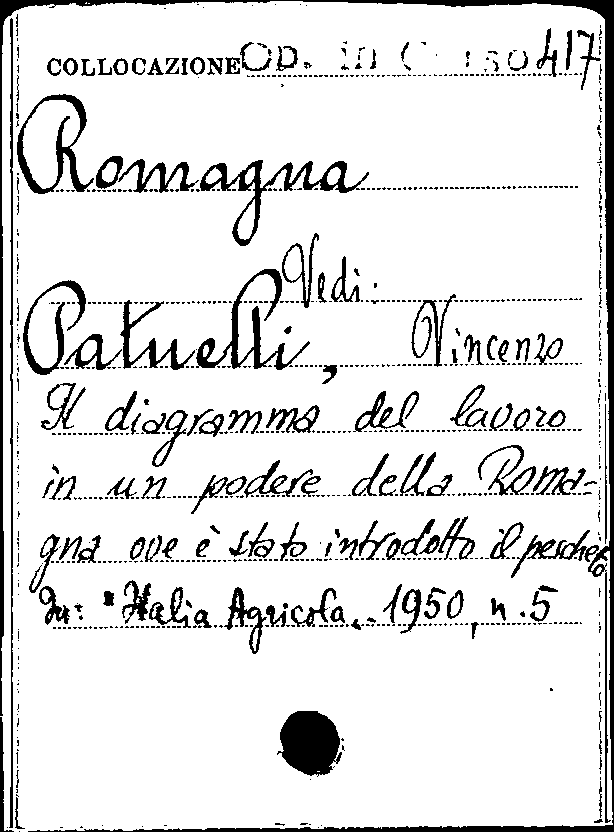 COLLOCAZIONE Op. in 417
Romagna
Vedi:
Patuelli, Vincenzo
Il diagramma del lavoro
in un podere della Roma-
gna ove è stato introdotto il pescheto
In: "Italia Agricola„. 1950, n. 5